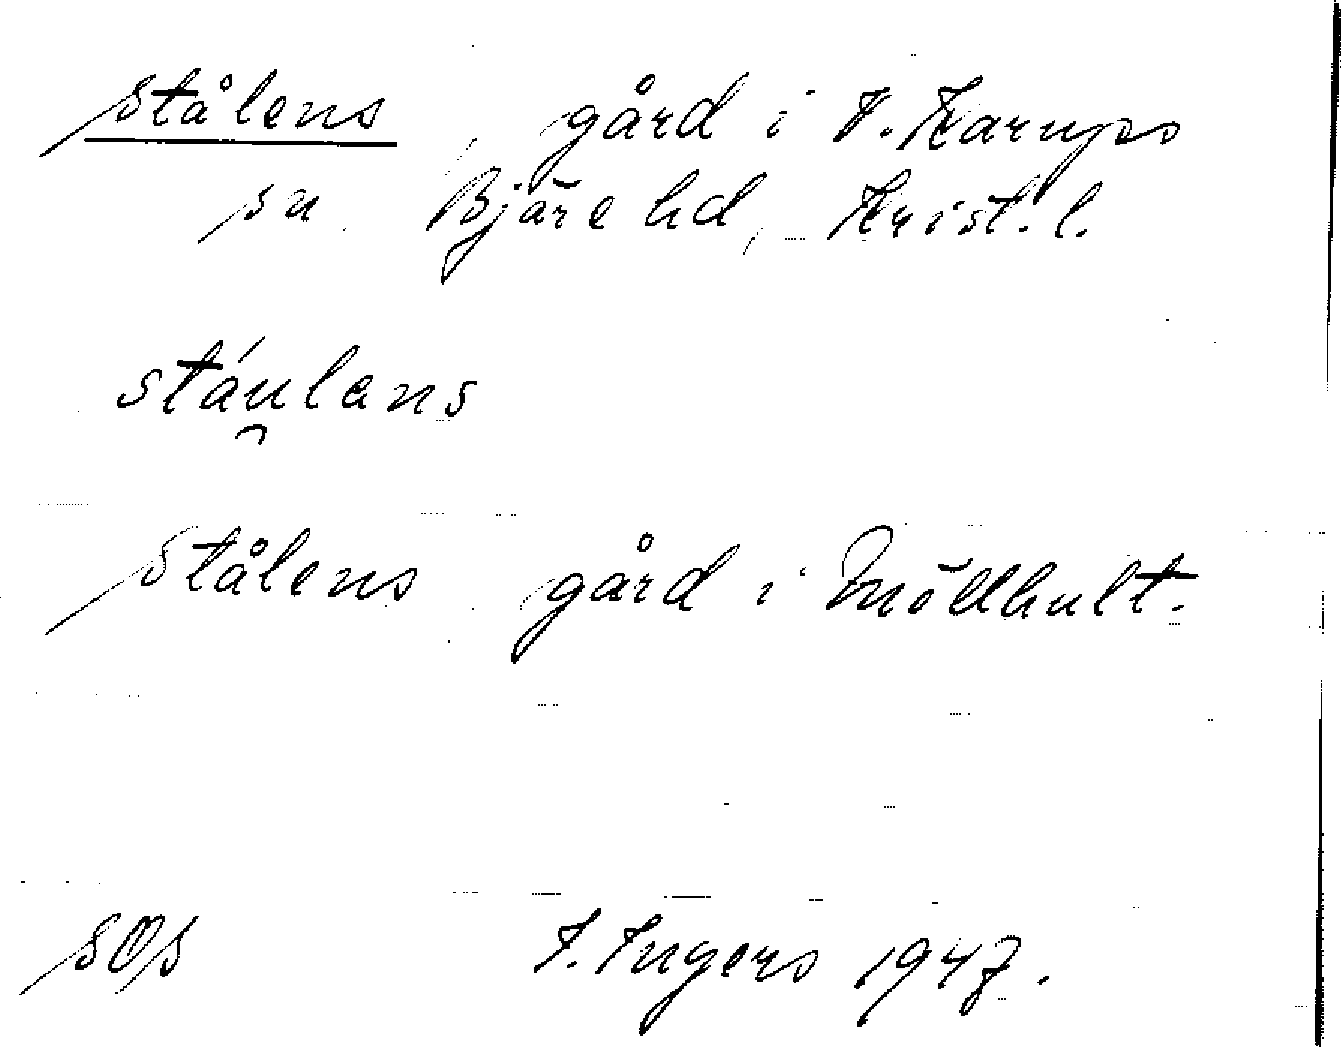 Stålens, gård i V. Karups
sn. Bjäre hd, Krist. l.
stáu̯lens
Stålens gård i Möllhult.
SOS I. Ingers 1947.